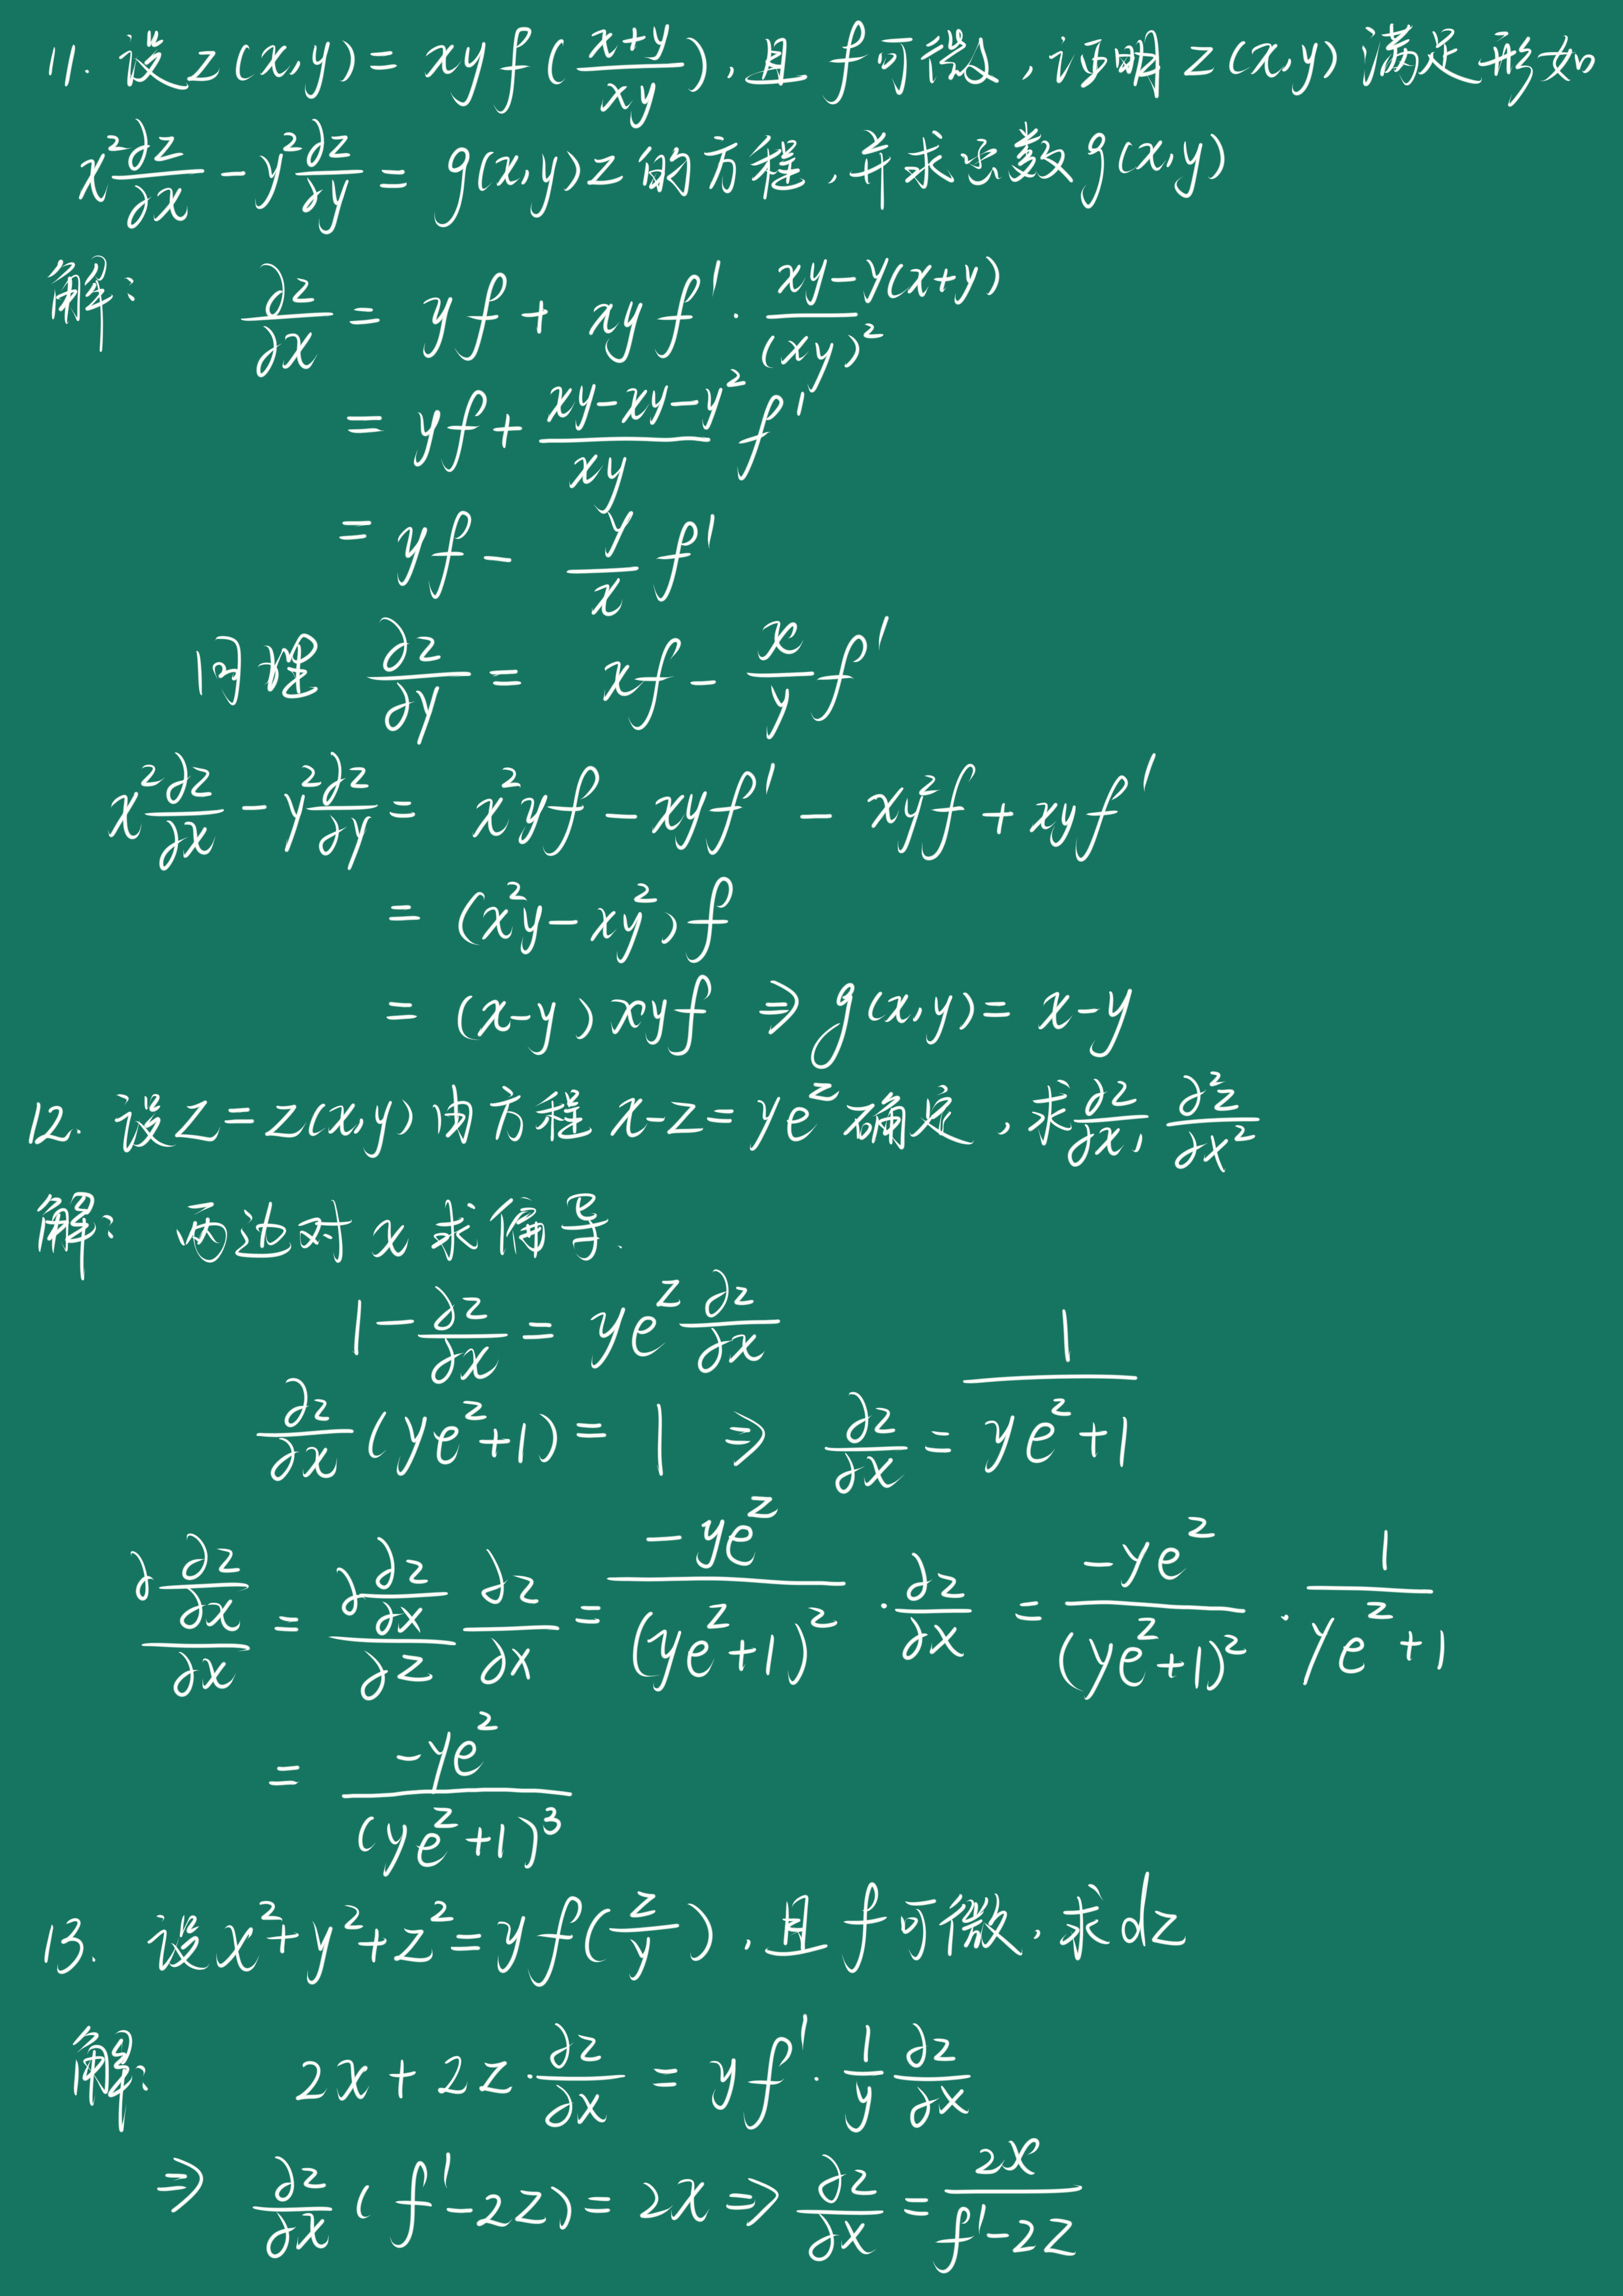 11. 设 z(x,y) = xy f((x+y)/(xy)), 且 f 可微, 证明 z(x,y) 满足形如
x² ∂z/∂x - y² ∂z/∂y = g(x,y)z 的方程, 并求函数 g(x,y)
解: ∂z/∂x = yf + xyf′ · (xy-y(x+y))/(xy)²
= yf + (xy-xy-y²)/(xy) f′
= yf - y/x f′
同理 ∂z/∂y = xf - x/y f′
x² ∂z/∂x - y² ∂z/∂y = x²yf - xyf′ - xy²f + xyf′
= (x²y-xy²)f
= (x-y)xyf ⇒ g(x,y) = x-y
12. 设 z = z(x,y) 由方程 x-z = ye^z 确定, 求 ∂z/∂x, ∂²z/∂x²
解: 两边对 x 求偏导.
1 - ∂z/∂x = ye^z ∂z/∂x
∂z/∂x (ye^z+1) = 1 ⇒ ∂z/∂x = 1/(ye^z+1)
(∂ ∂z/∂x)/∂x = (∂ ∂z/∂x)/∂z ∂z/∂x = -ye^z/(ye^z+1)² · ∂z/∂x = -ye^z/(ye^z+1)² · 1/(ye^z+1)
= -ye^z/(ye^z+1)³
13. 设 x²+y²+z² = yf(z/y), 且 f 可微, 求 dz
解: 2x + 2z · ∂z/∂x = yf′ · 1/y ∂z/∂x
⇒ ∂z/∂x (f′-2z) = 2x ⇒ ∂z/∂x = 2x/(f′-2z)